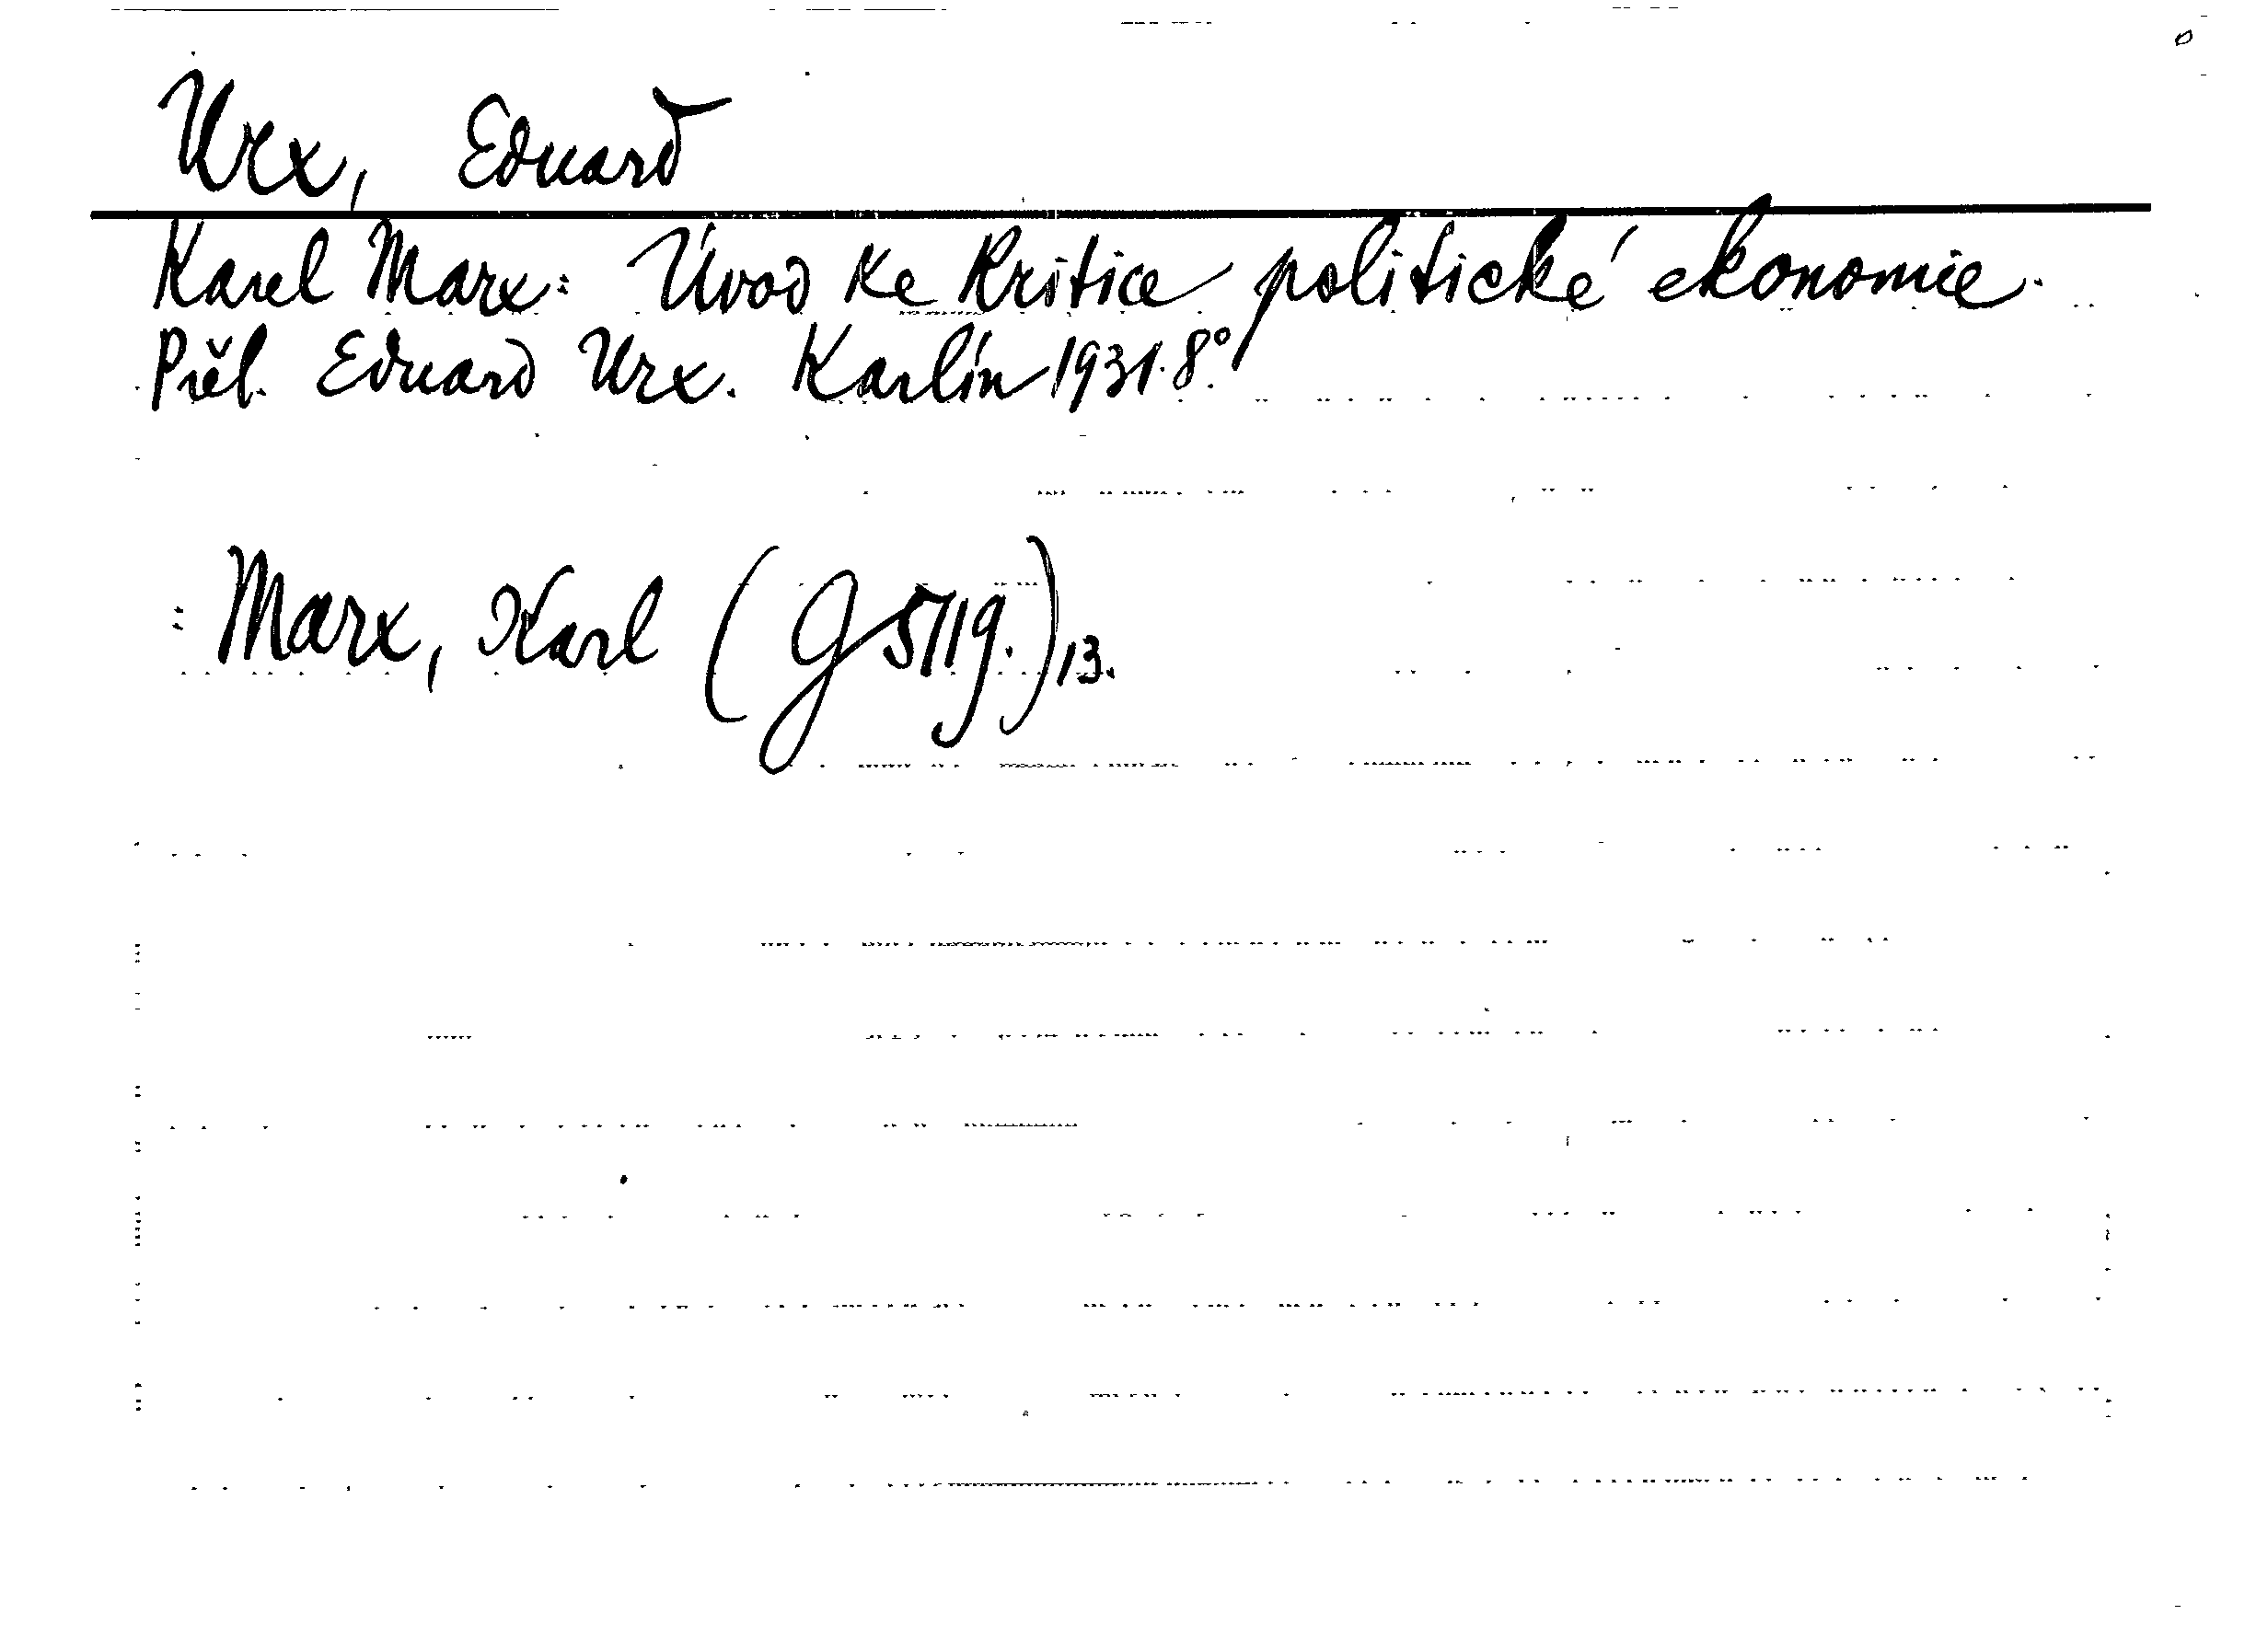 Urx, Eduard
Karel Marx: Úvod ke kritice politické ekonomie.
Přel. Eduard Urx. Karlín 1931. 8°.
: Marx, Karl (G 5119.)13.